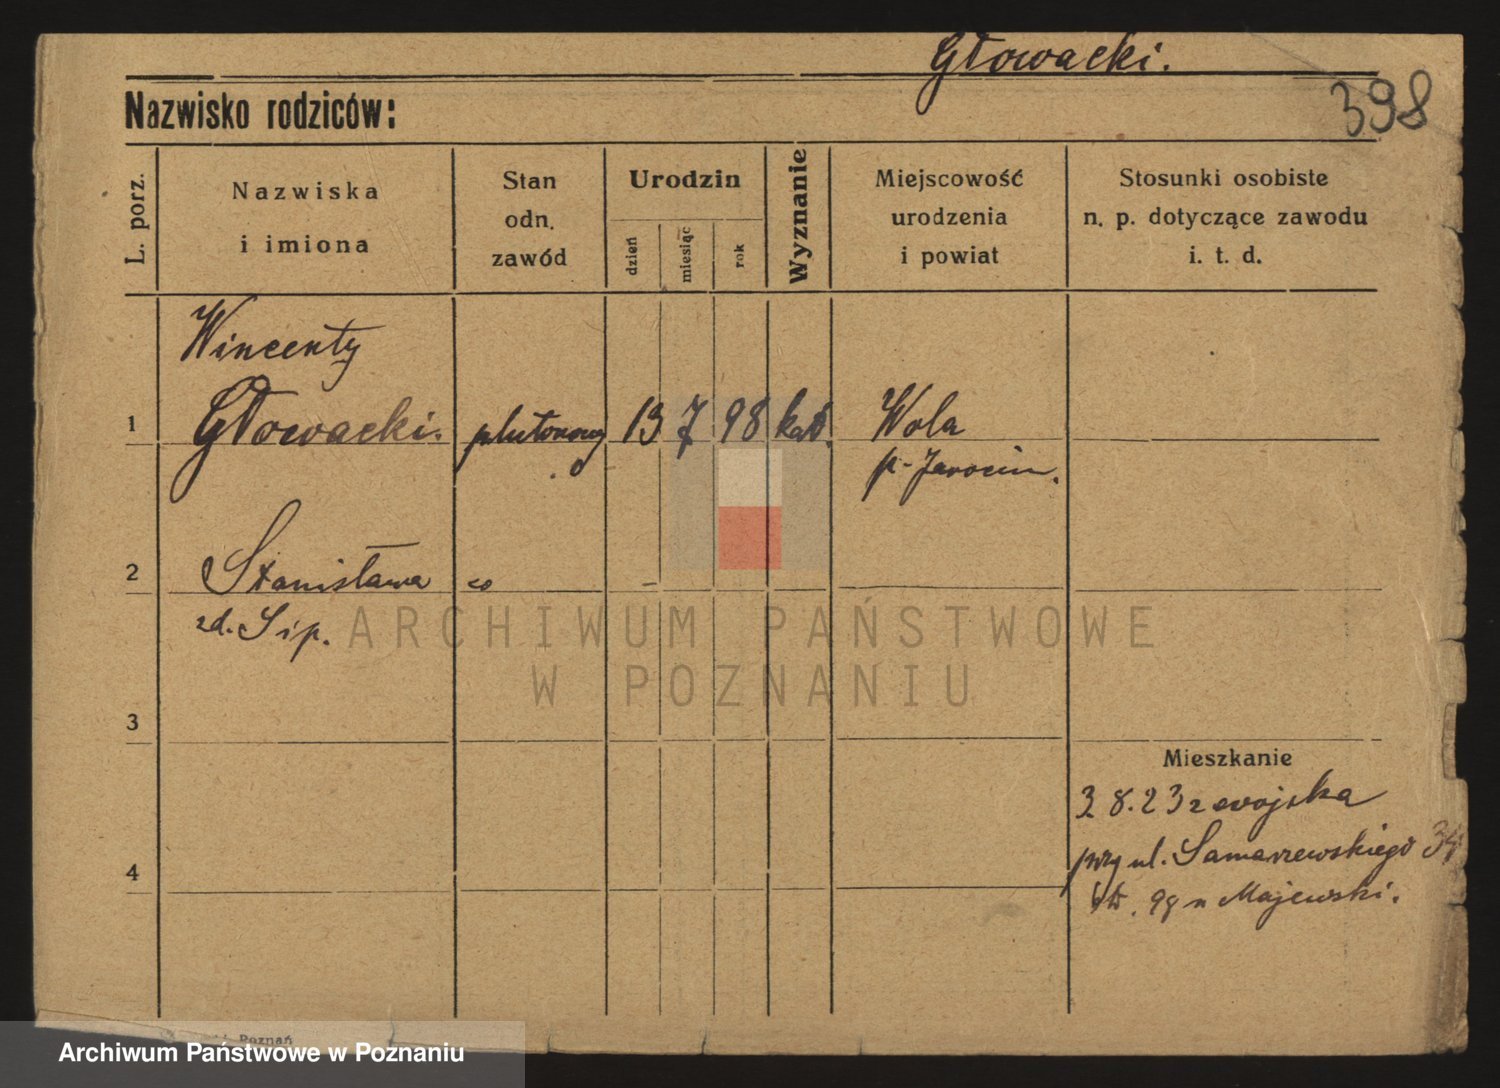 Głowacki.
398
Nazwisko rodziców:
L. porz.
Nazwiska
i imiona
Stan
odn.
zawód
Urodzin
dzień
miesiąc
rok
Wyznanie
Miejscowość
urodzenia
i powiat
Stosunki osobiste
n. p. dotyczące zawodu
i. t. d.
Wincenty
1 Głowacki. plutonowy 13 7 98 kat. Wola
p. Jarocin.
2 Stanisława
zd. Sip.
ARCHIWUM PAŃSTWOWE
W POZNANIU
3
Mieszkanie
3.8.23 z wojska
przy ul. Samarzewskiego 34
4
98 n Majewski.
Poznań
Archiwum Państwowe w Poznaniu